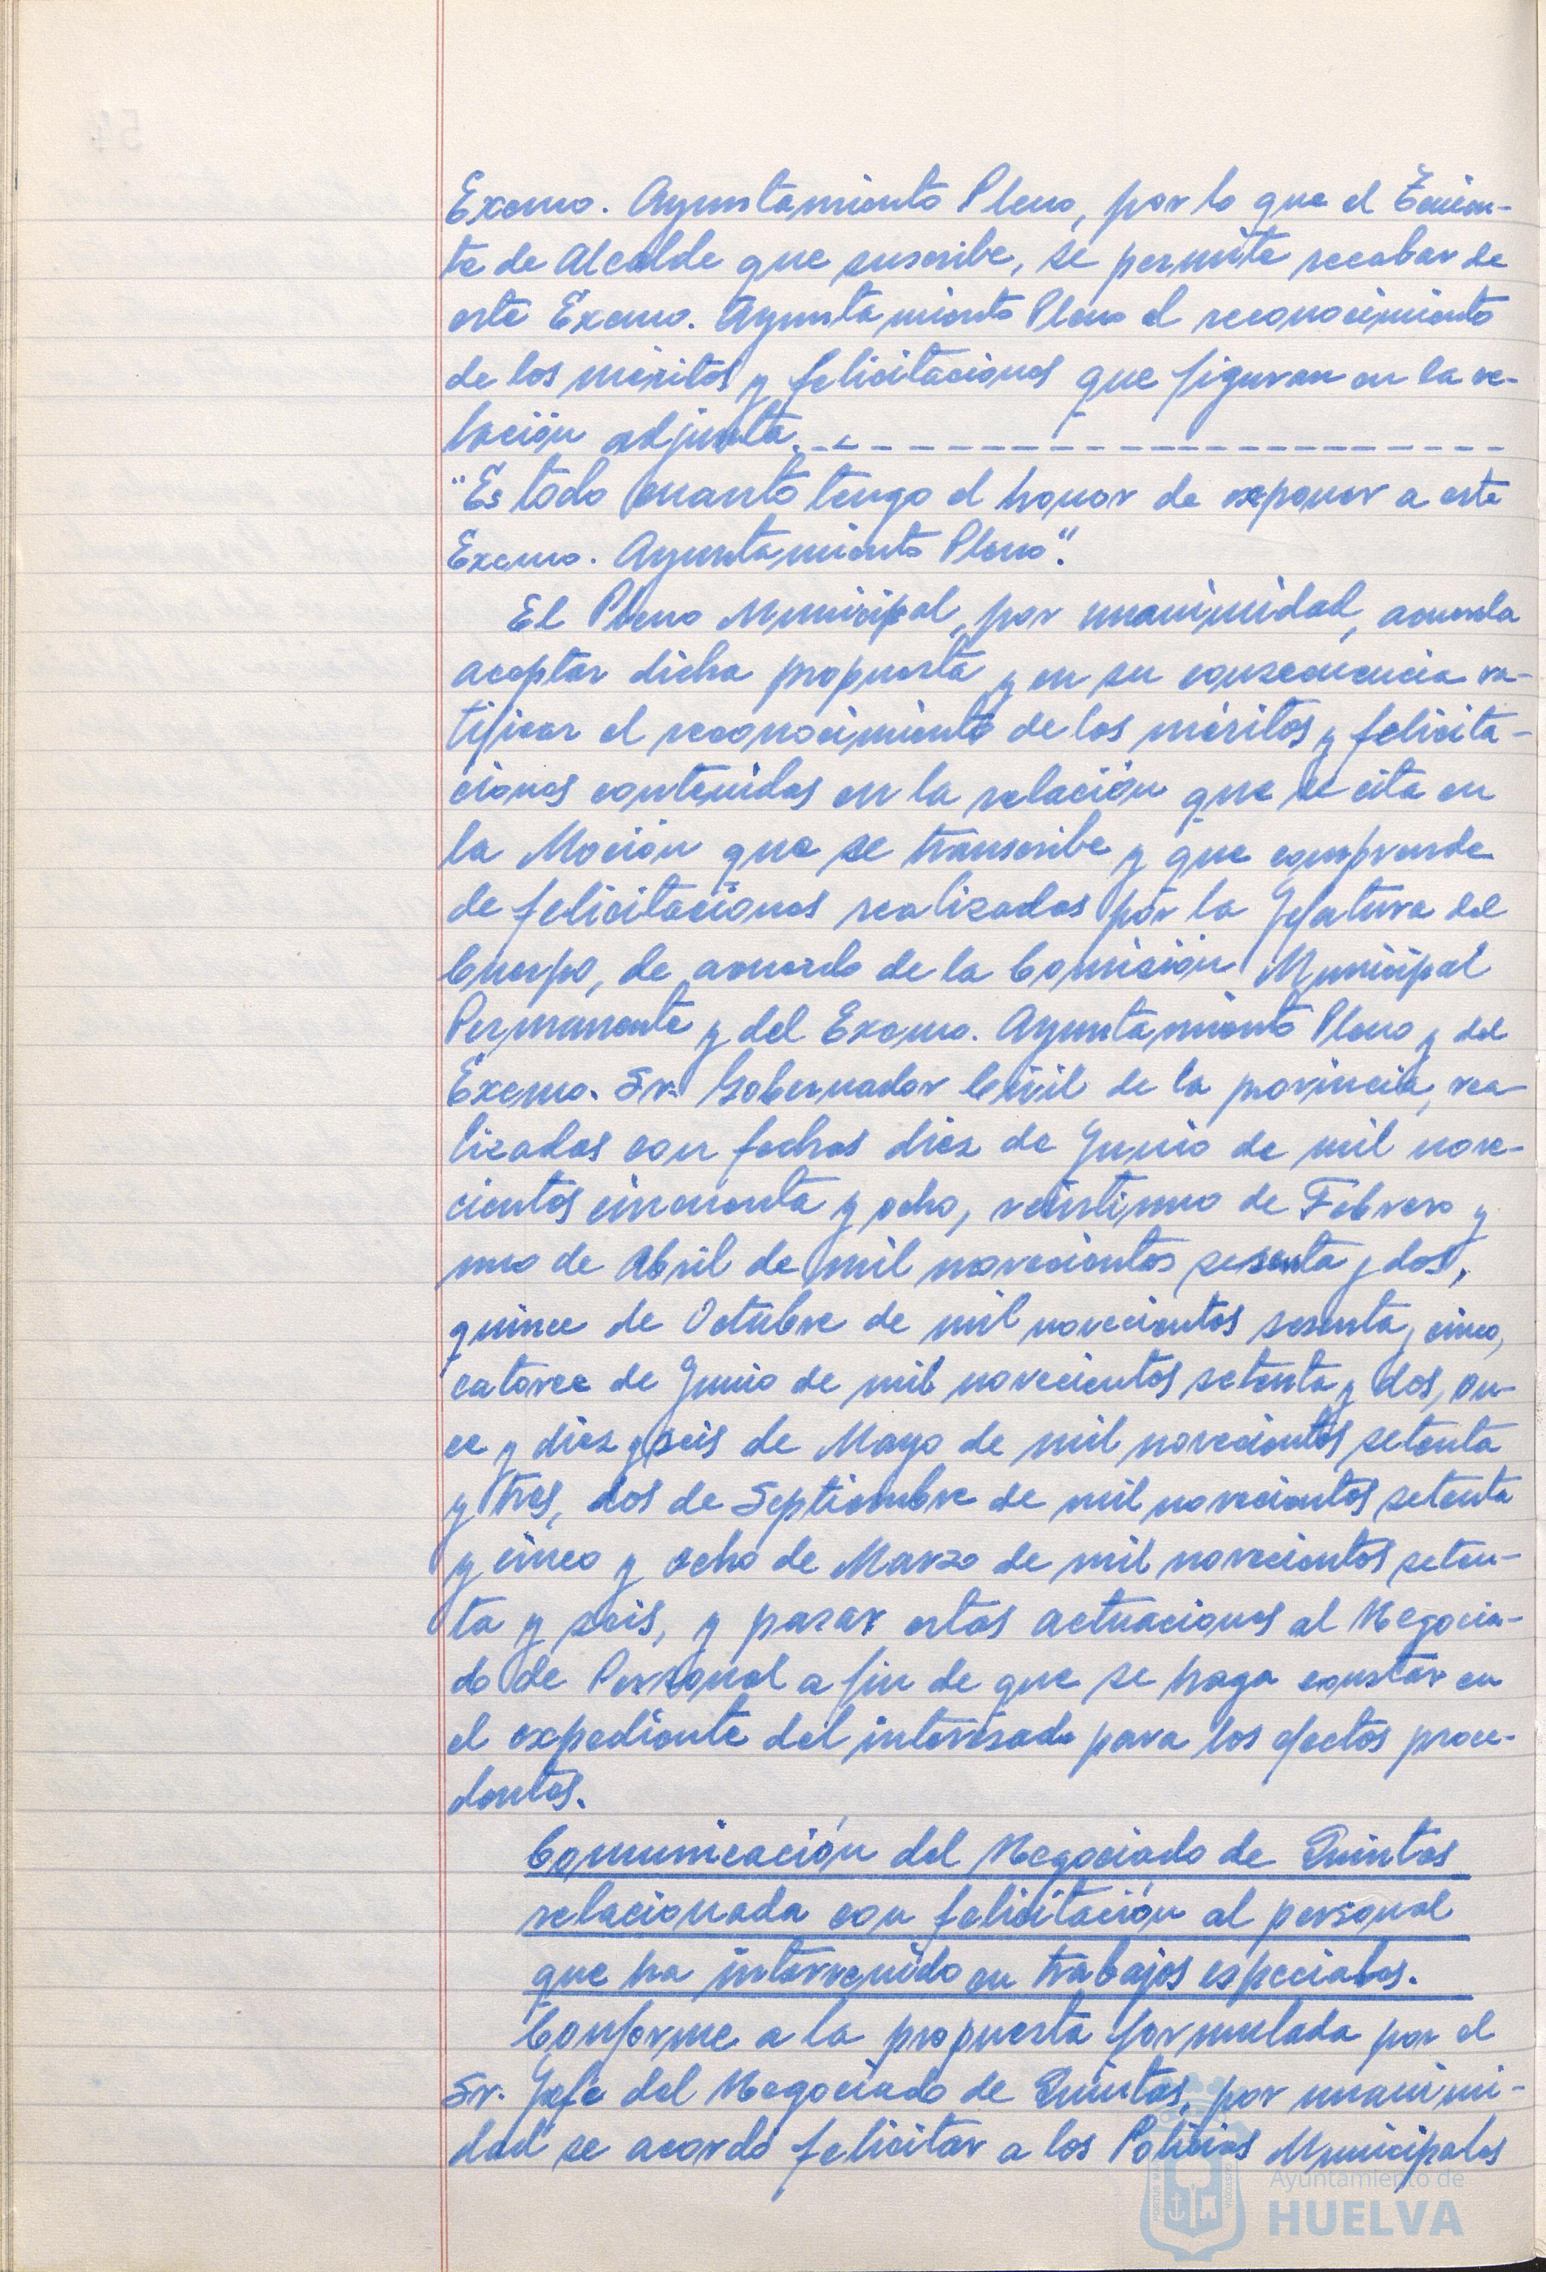 Excmo. Ayuntamiento Pleno, por lo que el Tenien-
te de Alcalde que suscribe, se permite recabar de
este Excmo. Ayuntamiento Pleno el reconocimiento
de los méritos y felicitaciones que figuran en la re-
lación adjunta. - - - - - - - - - - - - - - - - - - -
"Es todo cuanto tengo el honor de exponer a este
Excmo. Ayuntamiento Pleno".
El Pleno Municipal, por unanimidad, acuerda
aceptar dicha propuesta y en su consecuencia ra-
tificar el reconocimiento de los méritos y felicita-
ciones contenidas en la relación que se cita en
la Moción que se transcribe y que comprende
de felicitaciones realizadas por la Jefatura del
Cuerpo, de acuerdo de la Comisión Municipal
Permanente y del Excmo. Ayuntamiento Pleno y del
Excmo. Sr. Gobernador Civil de la provincia, rea-
lizadas con fechas diez de Junio de mil nove-
cientos cincuenta y ocho, veintiuno de Febrero y
uno de Abril de mil novecientos sesenta y dos,
quince de Octubre de mil novecientos sesenta y cinco,
catorce de Junio de mil novecientos setenta y dos, on-
ce y diez y seis de Mayo de mil novecientos setenta
y tres, dos de Septiembre de mil novecientos setenta
y cinco y ocho de Marzo de mil novecientos seten-
ta y seis, y pasar estas actuaciones al Negocia-
do de Personal a fin de que se haga constar en
el expediente del interesado para los efectos proce-
dentes.
Comunicación del Negociado de Quintas
relacionada con felicitación al personal
que ha intervenido en trabajos especiales.
Conforme a la propuesta formulada por el
Sr. Jefe del Negociado de Quintas, por unanimi-
dad se acordó felicitar a los Policias Municipales
Ayuntamiento de
HUELVA